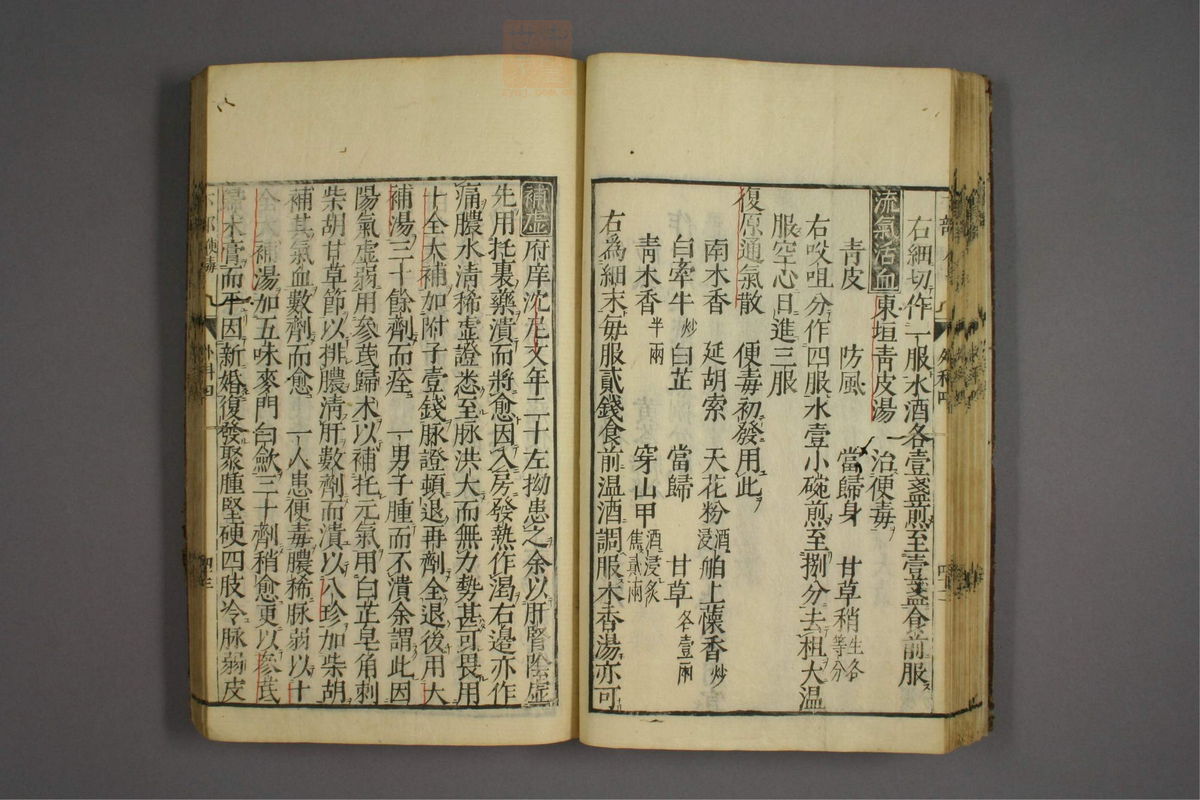 右細切作一服水酒各壹盞煎至壹盞食前服
流氣活血 東垣青皮湯 治便毒
青皮 防風 當歸身 甘草稍 生各等分
右㕮咀分作四服水壹小碗煎至捌分去柤大温
服空心日進三服
復原通氣散 便毒初發用此
南木香 延胡索 天花粉 酒浸 舶上懷香 炒
白牽牛 炒 白芷 當歸 甘草 各壹兩
靑木香 半兩 穿山甲 酒浸炙焦貳兩
右爲細末每服貳錢食前温酒調服木香湯亦可
補虚 府庠沈尼文年二十左拗患之余以肝腎陰虚
先用托裏藥潰而將愈因入房發熱作渴右邊亦作
痛膿水清稀虚證悉至脉洪大而無力勢甚可畏用
十全大補加附子壹錢脉證頓退再劑全退後用大
補湯三十餘劑而痊 一男子腫而不潰余謂此因
陽氣虚弱用參芪歸术以補托元氣用白芷皂角刺
柴胡甘草節以排膿清肝數劑而潰以八珍加柴胡
補其氣血數劑而愈 一人患便毒膿稀脉弱以十
全大補湯加五味麥門白歛三十劑稍愈更以參芪
歸术膏而平因新婚復發聚腫堅硬四肢冷脉弱皮